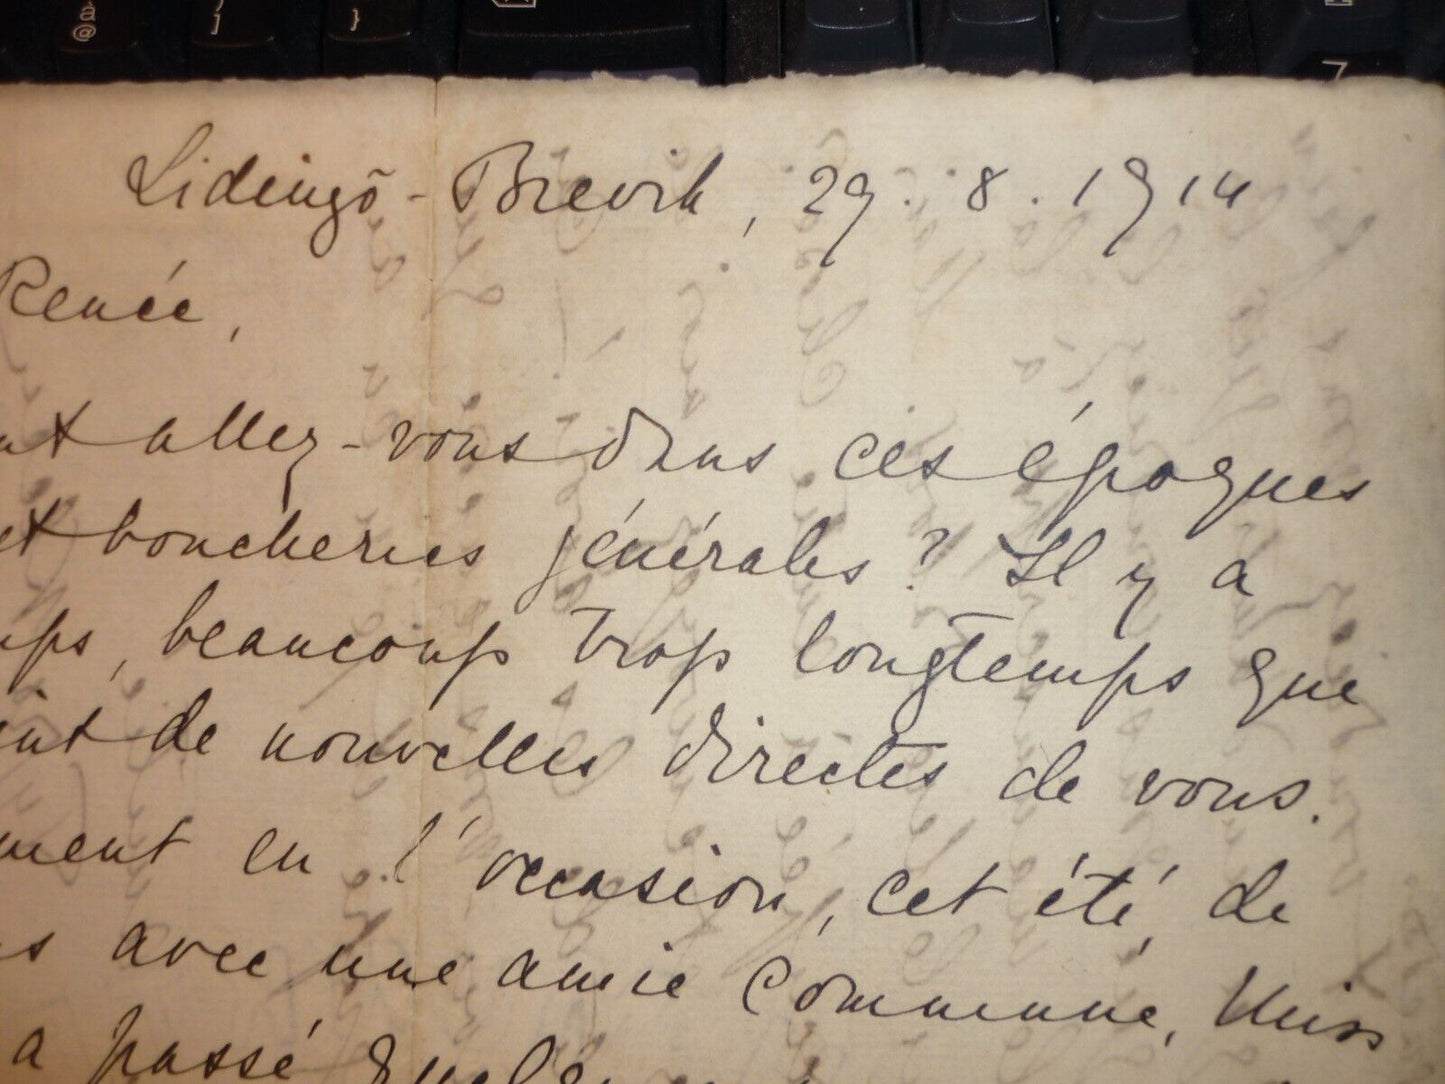 Lidingö - Brevik, 29. 8. 1914
Renée,
nt allez-vous dans ces époques
et boucheries générales ? Il y a
mps, beaucoup trop longtemps que
de nouvelles directes de vous.
ment eu l'occasion, cet été, de
s avec une amie commune, Miss
a passé